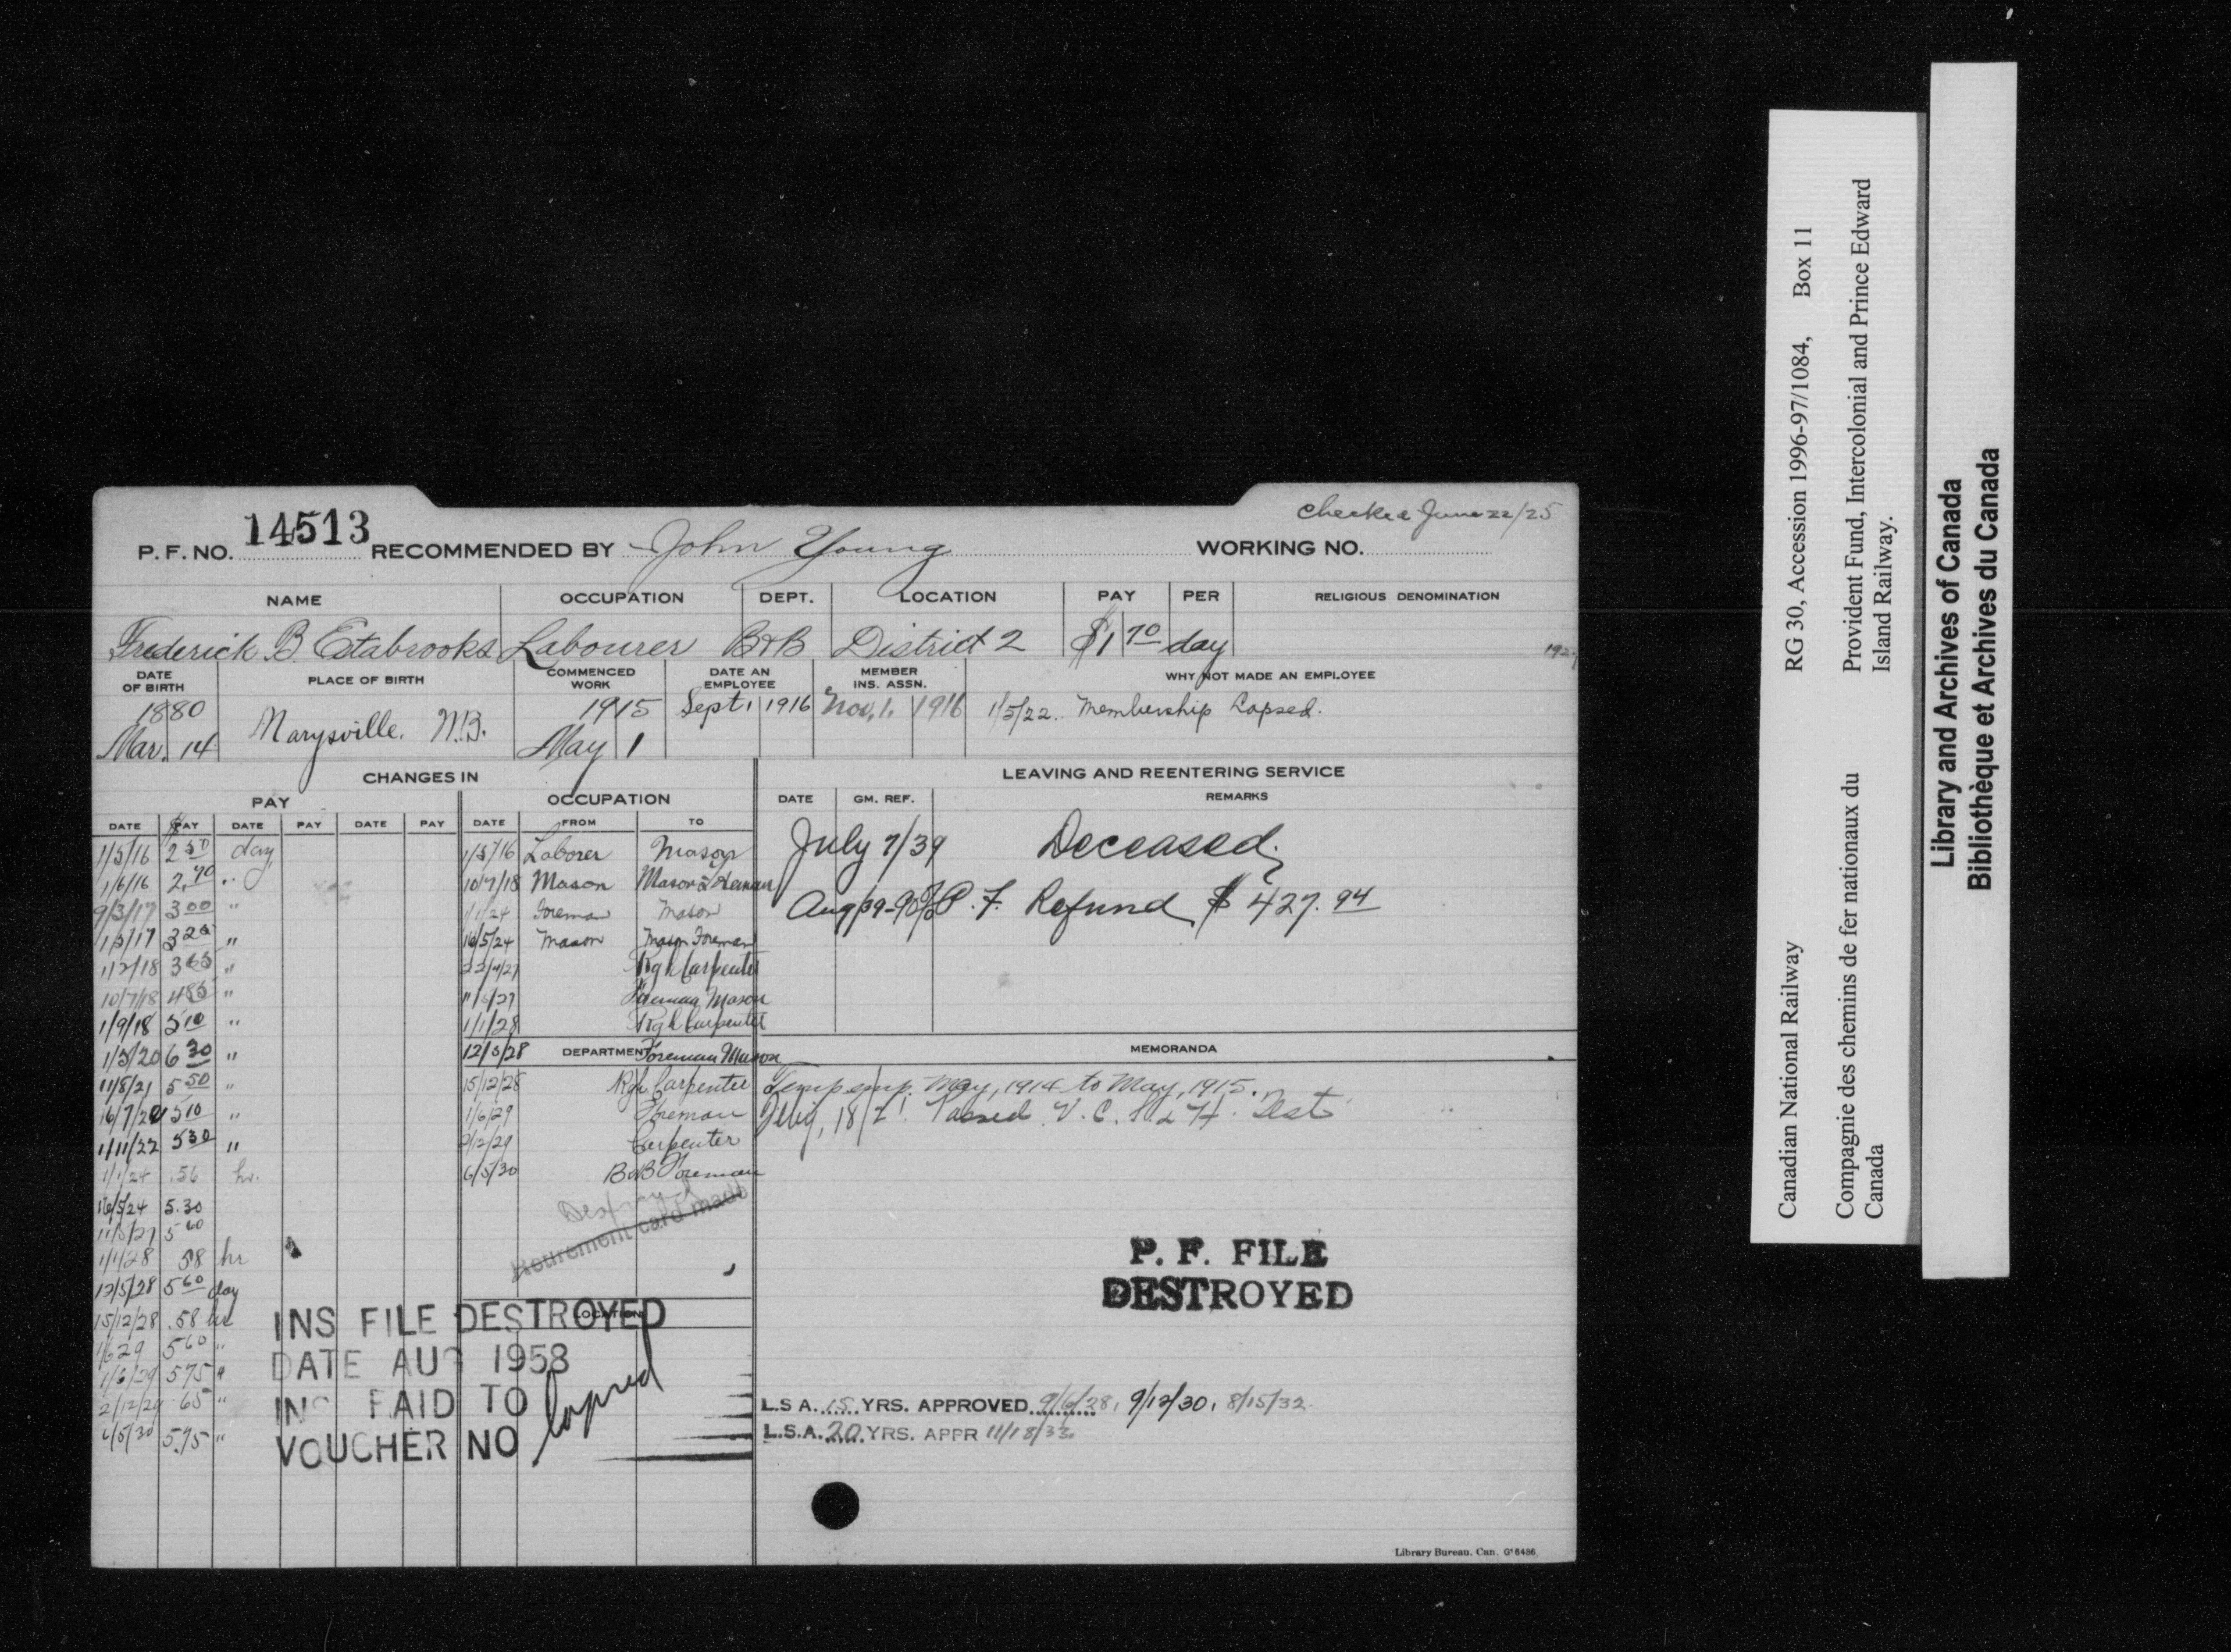 checked June 22/25
P. F. NO. 14513 RECOMMENDED BY John Young WORKING NO.
NAME OCCUPATION DEPT. LOCATION PAY PER RELIGIOUS DENOMINATION
Frederick B. Estabrooks Labourer B+B District 2 $1 70 day
DATE OF BIRTH PLACE OF BIRTH COMMENCED WORK DATE AN EMPLOYEE MEMBER INS. ASSN. WHY NOT MADE AN EMPLOYEE
1880 1915 Sept. 1 1916 Nov. 1. 1916 1/5/22. Membership Lapsed.
Mar. 14 Marysville. N.B. May 1
CHANGES IN
PAY OCCUPATION
DATE $ PAY DATE PAY DATE PAY DATE FROM TO
1/5/16 2 50 day 1/5/16 Laborer Mason
1/6/16 2.70 " 10/7/18 Mason Mason's
9/3/17 3 00 " 1/1/24 Foreman Mason
1/5/17 3 25 " 16/5/24 Mason Mason Foreman
1/2/18 3 65 " 22/4/27 Rgh Carpenter
10/7/18 4 85 " 11/5/27 Foreman Mason
1/9/18 5 10 " 1/1/28 Rgh Carpenter
1/5/20 6 30 " 12/5/28 DEPARTMENT Foreman Mason
11/8/21 5 50 " 15/12/28 Rgh Carpenter
16/7/22 5 10 " 1/6/29 Foreman
1/11/22 5 30 " 2/12/29 Carpenter
1/1/24 .56 hr. 6/5/30 B&B Foreman
16/5/24 5.30
11/5/27 5 60
1/1/28 58 hr
12/5/28 5 60 day
15/12/28 .58 hr
1/6/29 5 60 "
1/6/29 5 75 "
2/12/29 .65 "
6/5/30 5.75 "
Destroyed
Retirement card made
LOCATION
INS FILE DESTROYED
DATE AUG 1958
INS PAID TO
VOUCHER NO lapsed
LEAVING AND REENTERING SERVICE
DATE GM. REF. REMARKS
July 7/39 Deceased.
Aug/39 P. F. Refund $ 427.94
MEMORANDA
Temp emp. May, 1914 to May, 1915.
Passed V. C. S. & H. Test
P. F. FILE
DESTROYED
L.S A. 15 YRS. APPROVED 9/6/28, 9/12/30, 8/15/32.
L.S.A. 20 YRS. APPR 11/18/33.
Library Bureau. Can. G16486
Canadian National Railway RG 30, Accession 1996-97/1084, Box 11
Compagnie des chemins de fer nationaux du Canada
Provident Fund, Intercolonial and Prince Edward Island Railway.
Library and Archives of Canada
Bibliothèque et Archives du Canada